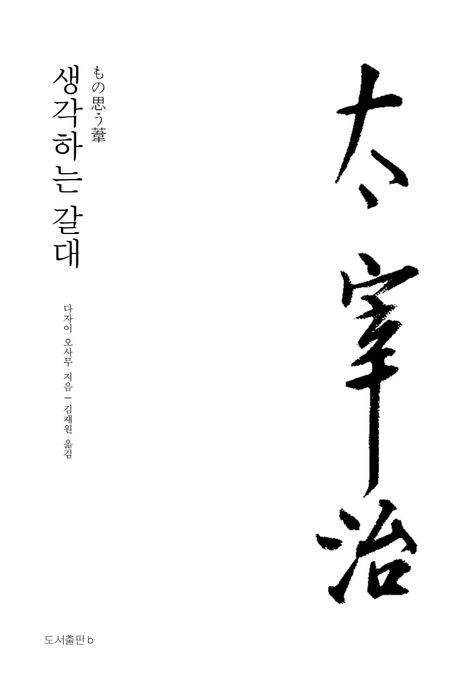 太宰治
もの思う葦
생각하는 갈대
다자이 오사무 지음 — 김재원 옮김
도서출판 b